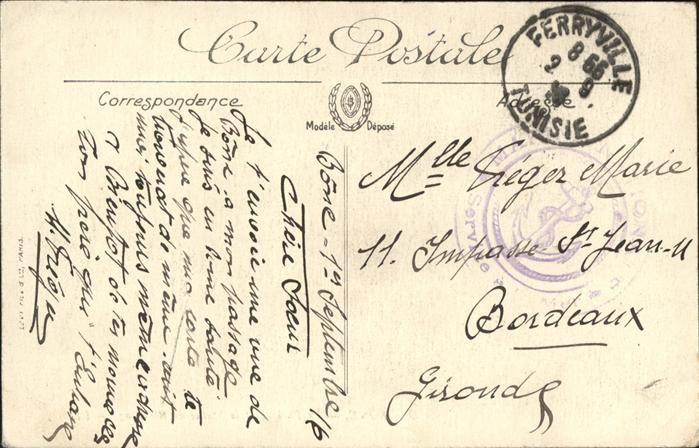 Carte Postale
FERRYVILLE
8 55
2 9
TUNISIE
Correspondance
Adresse
Modèle Déposé
Bône - 1er Septembre 16
Chère Soeur
Je t'envoie une vue de
Bône à mon passage
Je suis en bonne santé
J'espère que ma carte te
trouvera de même suis
moi toujours même adresse
à Bientôt de tes nouvelles
Ton frère qui t'embrasse
Mlle Viéger Marie
11. Impasse St Jean
Bordeaux
Gironde
Service